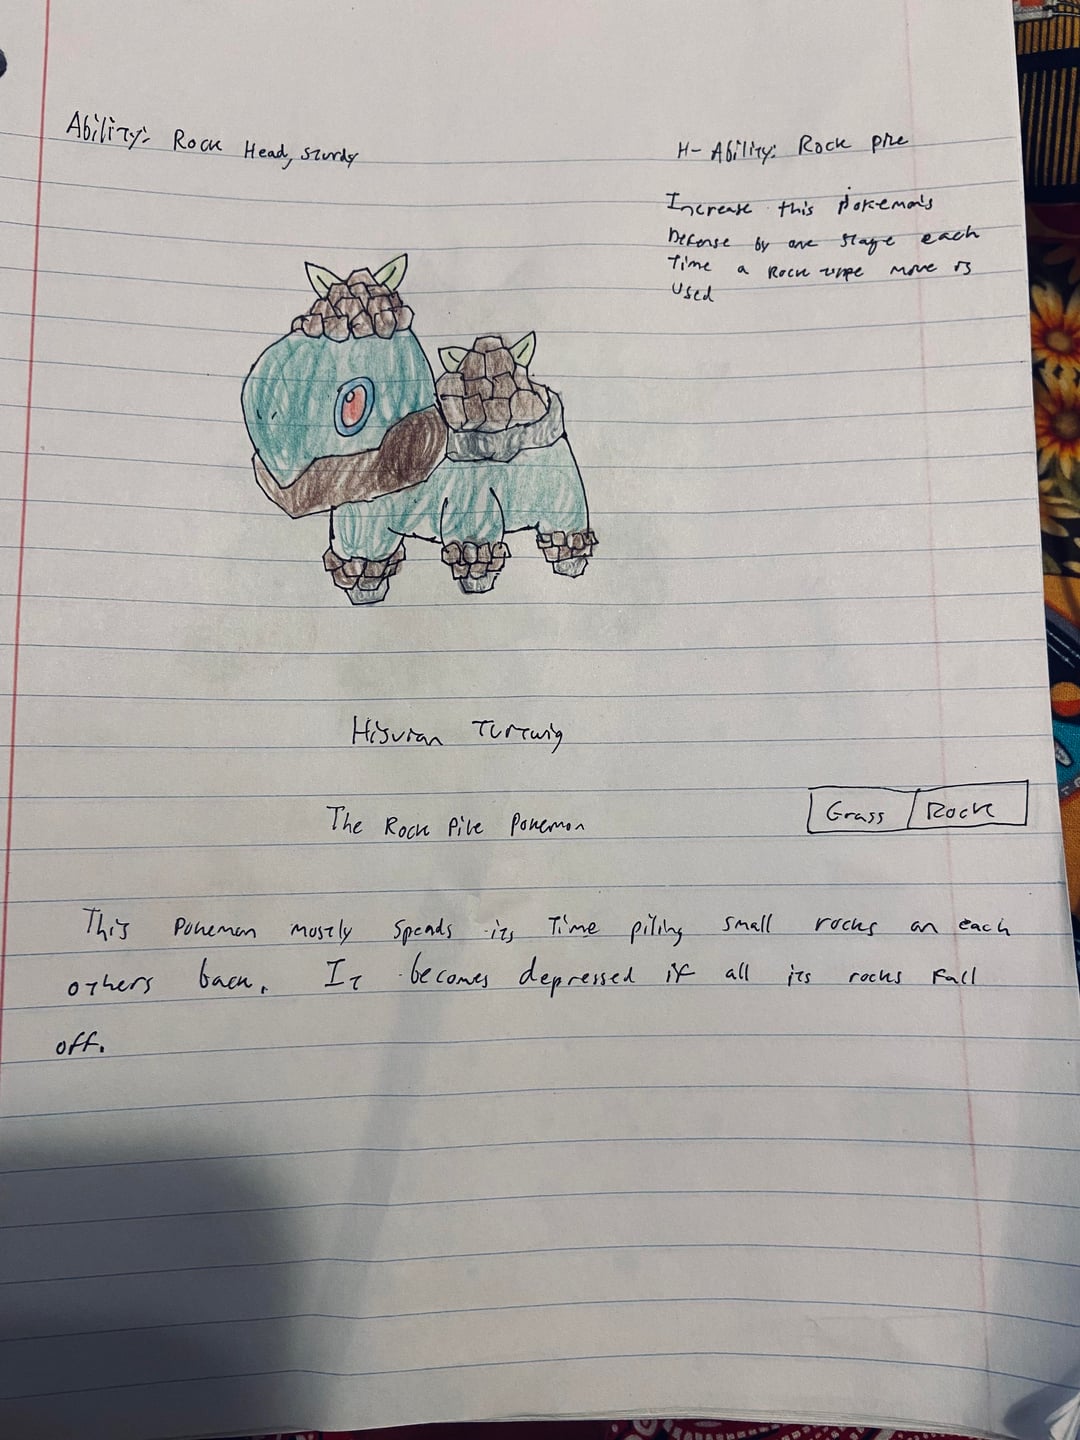 Ability: Rock Head, Sturdy
H- Ability: Rock pile
Increase this Pokemon's
Defense by one stage each
Time a Rock type move is
Used
Hisuian Turtwig
The Rock Pile Pokemon
Grass Rock
This Pokemon mostly spends its Time piling small rocks on each
others back. It becomes depressed if all its rocks Fall
off.